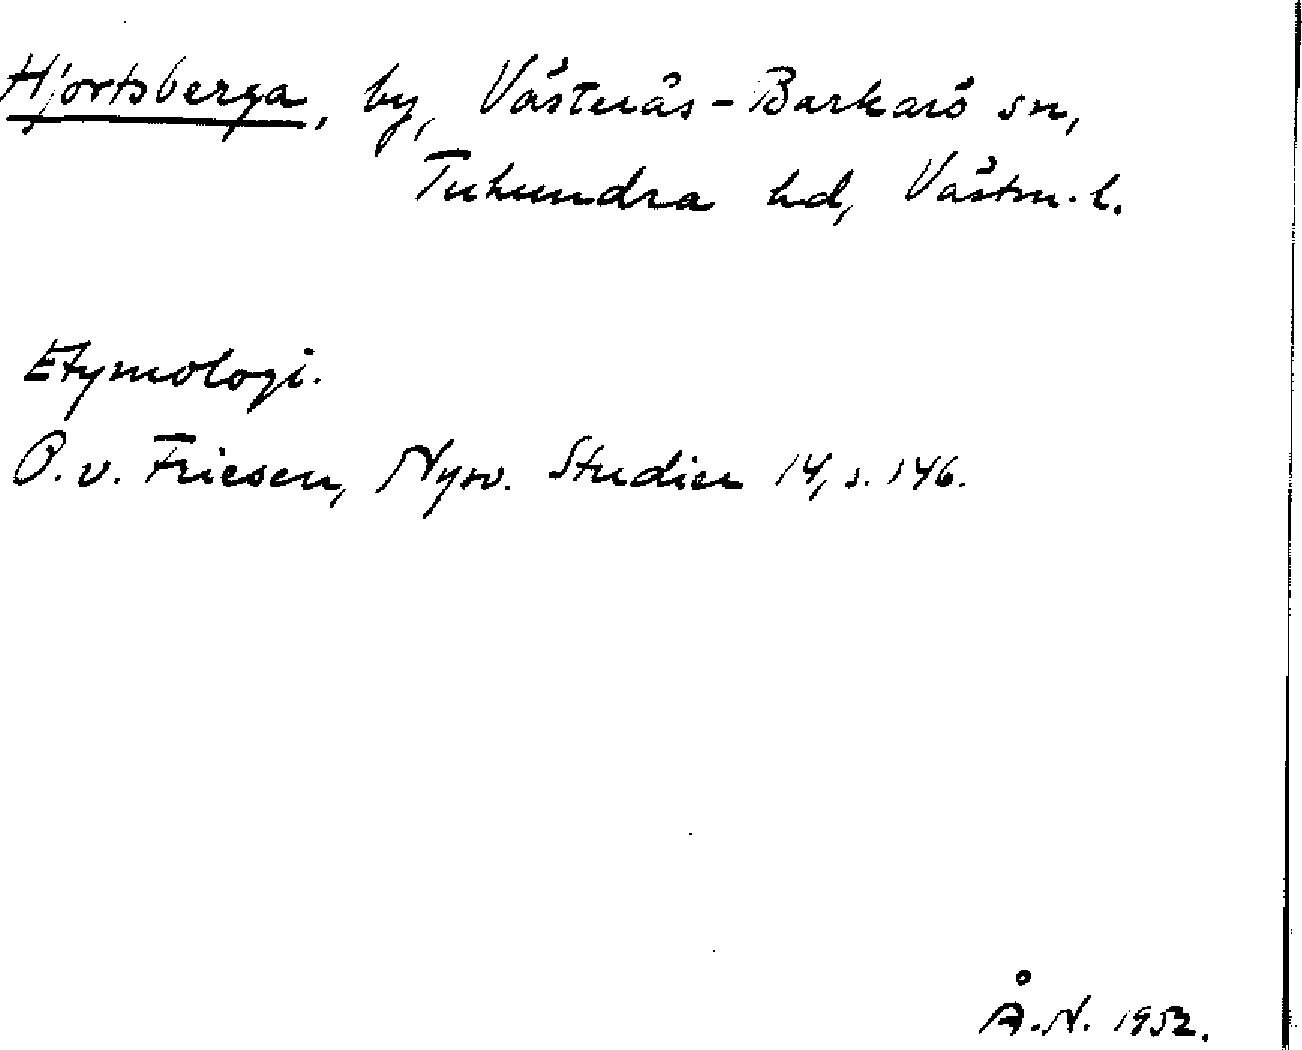 Hjortsberga, by, Västerås-Barkarö sn,
Tuhundra hd, Västm. l.
Etymologi.
O. v. Friesen, Nysv. Studier 14, s. 146.
Å.N. 1952.